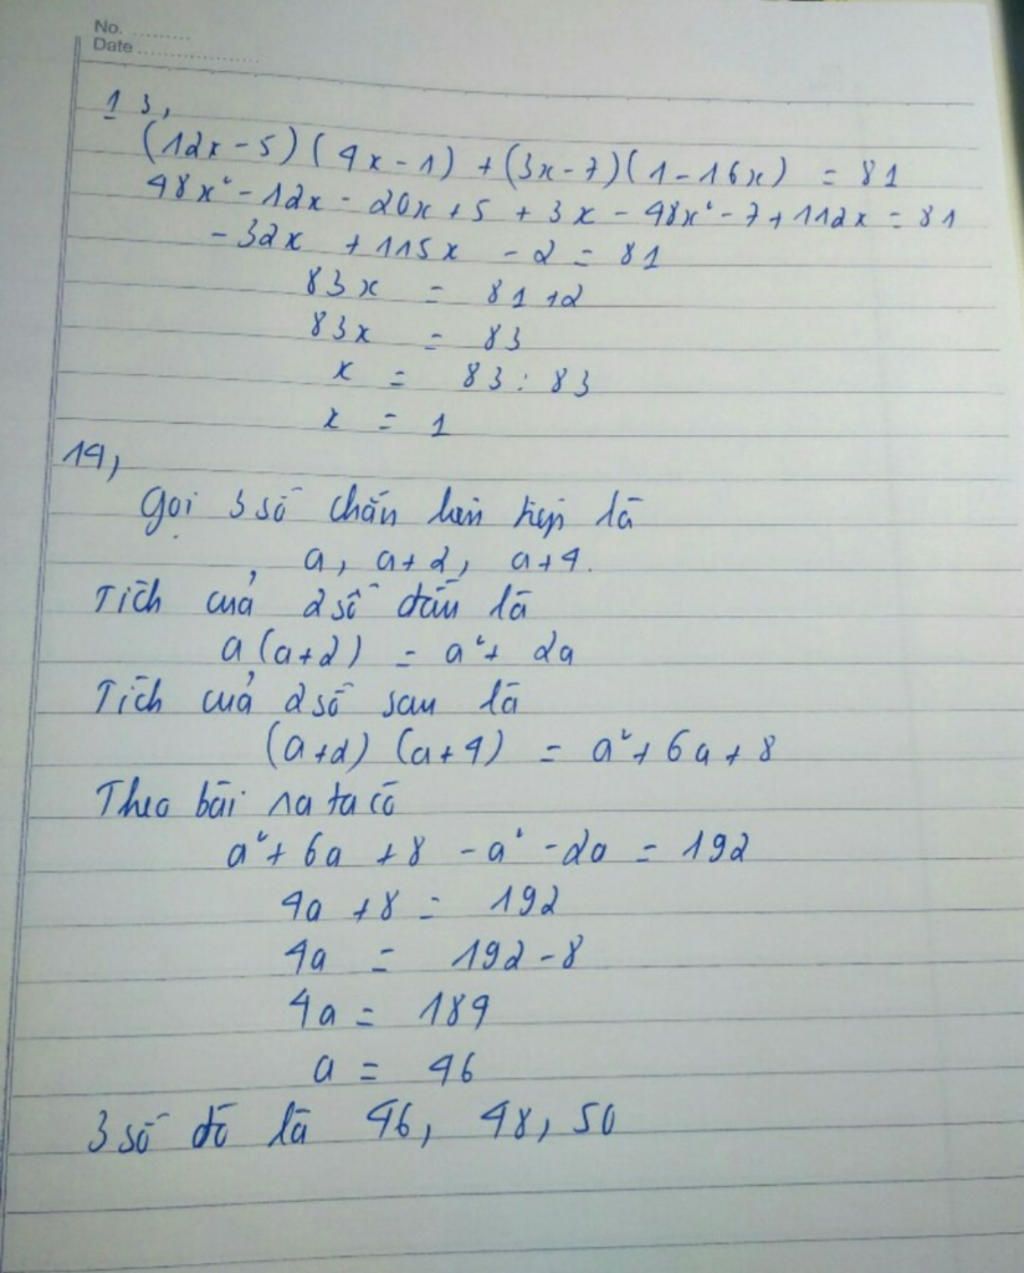 No. ..........
Date ....................
13,
(12x - 5)(4x - 1) + (3x - 7)(1 - 16x) = 81
48x² - 12x - 20x + 5 + 3x - 48x² - 7 + 112x = 81
- 32x + 115x - 2 = 81
83x = 81 + 2
83x = 83
x = 83 : 83
x = 1
14,
Gọi 3 số chẵn liên tiếp là
a, a+2, a+4.
Tích của 2 số đầu là
a(a+2) = a² + 2a
Tích của 2 số sau là
(a+2)(a+4) = a² + 6a + 8
Theo bài ra ta có
a² + 6a + 8 - a² - 2a = 192
4a + 8 = 192
4a = 192 - 8
4a = 184
a = 46
3 số đó là 46, 48, 50